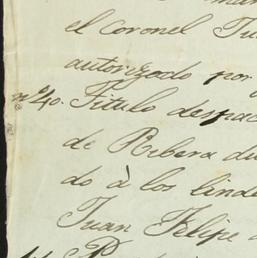 el Coronel Ju
autorizado por
nº 40. Titulo despac
de Ribera du
do à los linde
Juan Felipe